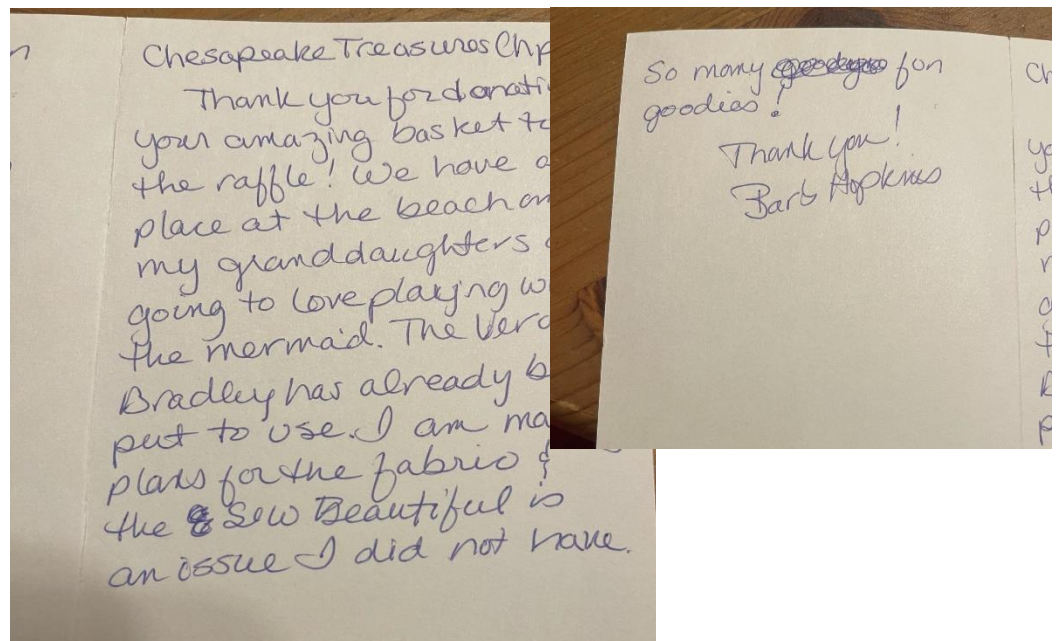 Chesapeake Treasures Chp
Thank you for donati
your amazing basket to
the raffle! We have a
place at the beach an
my granddaughters
going to love playing w
the mermaid. The Vera
Bradley has already b
put to use. I am ma
plans for the fabric &
the Sew Beautiful is
an issue I did not have.
So many fun
goodies!
Thank you!
Barb Hopkins